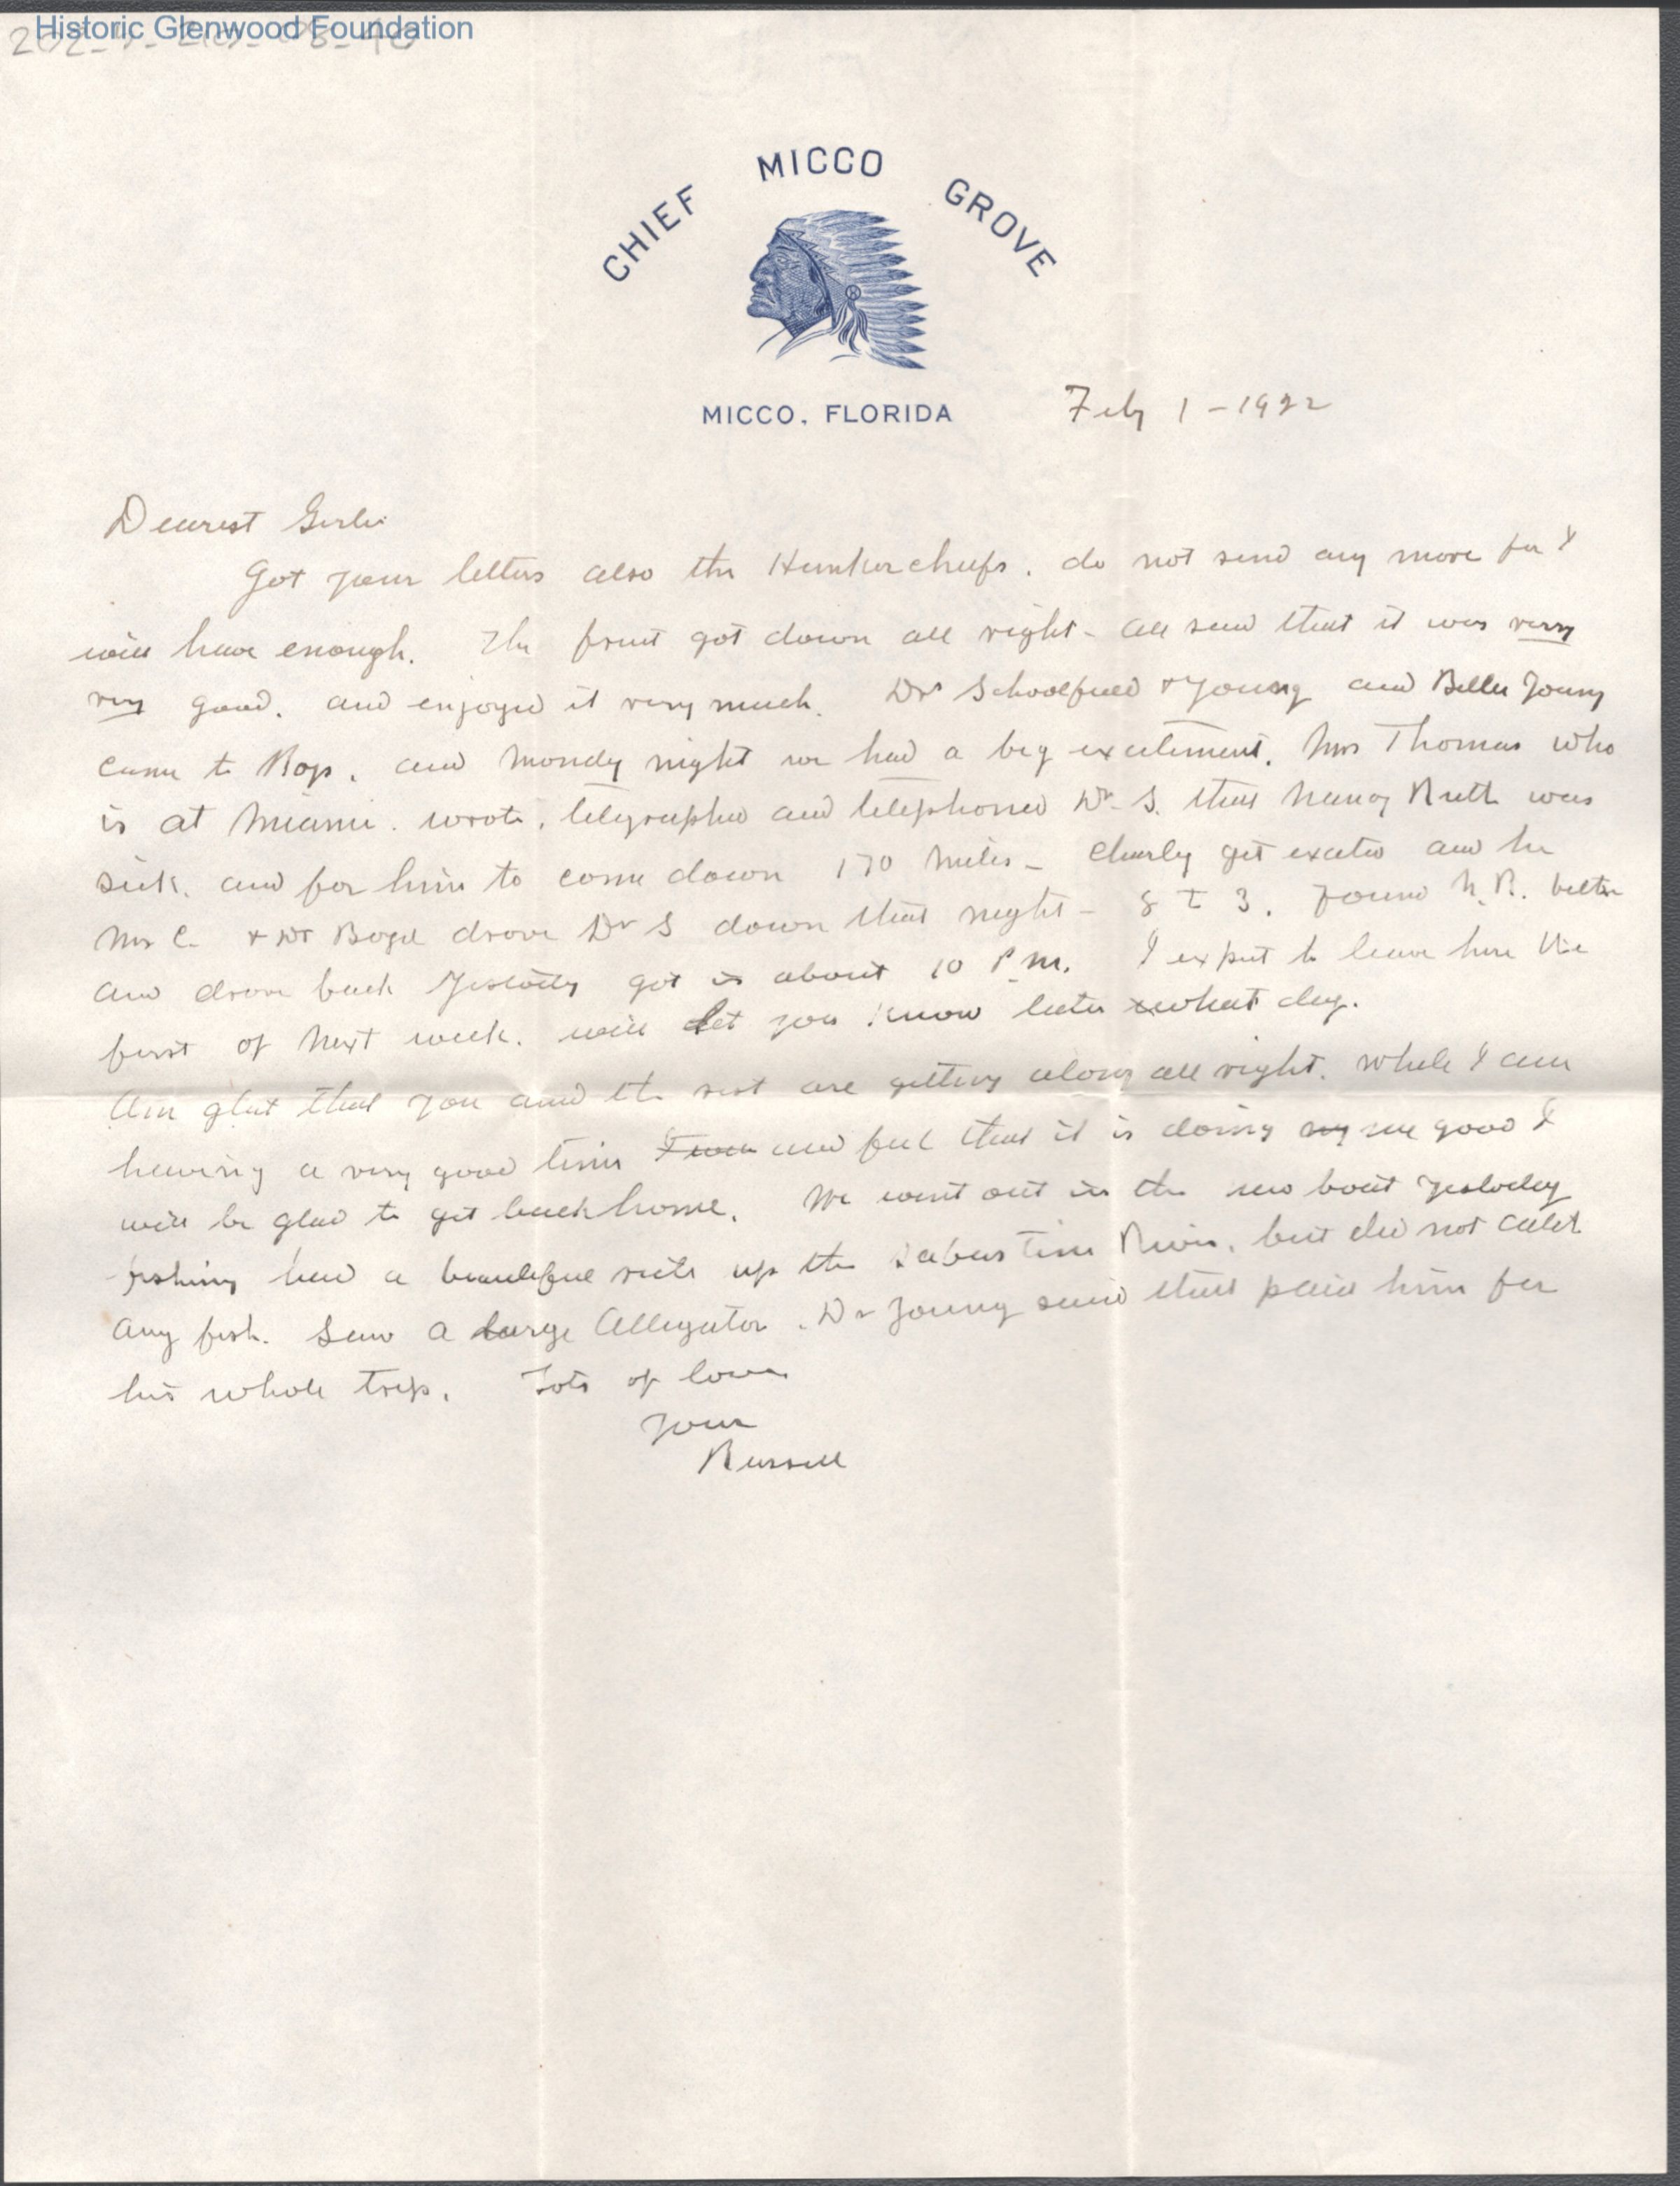 Historic Glenwood Foundation
CHIEF MICCO GROVE
MICCO, FLORIDA
Feby 1 - 1922
Dearest Girlie
Got your letters also the Hankerchiefs. do not send any more for I
will have enough. The fruit got down all right - all said that it was very
very good. and enjoyed it very much. Drs Schoolfield & Young and Billie Young
came to and Mondy night we had a big excitement. Mrs Thomas who
is at Miami. wrote, telegraphed and telephoned Dr. S. that Nancy Ruth was
sick. and for him to come down 170 Miles - Charly got excited and he
Mrs C. & Dr Boyd drove Dr S down that night - 8 to 3. Found N. R. better
and drove back Yestody got in about 10 P.M. I expect to leave here the
first of Next week. will let you know later what day.
Am glad that you and the rest are getting along all right. While I am
having a very good time and feel that it is doing my me good I
will be glad to get back home. We went out in the new boat yestodey
fishing had a beautiful ride up the Sabustine River. but did not catch
any fish. Saw a large Alligator. Dr Young said that paid him for
his whole trip. Lots of love
your
Russell